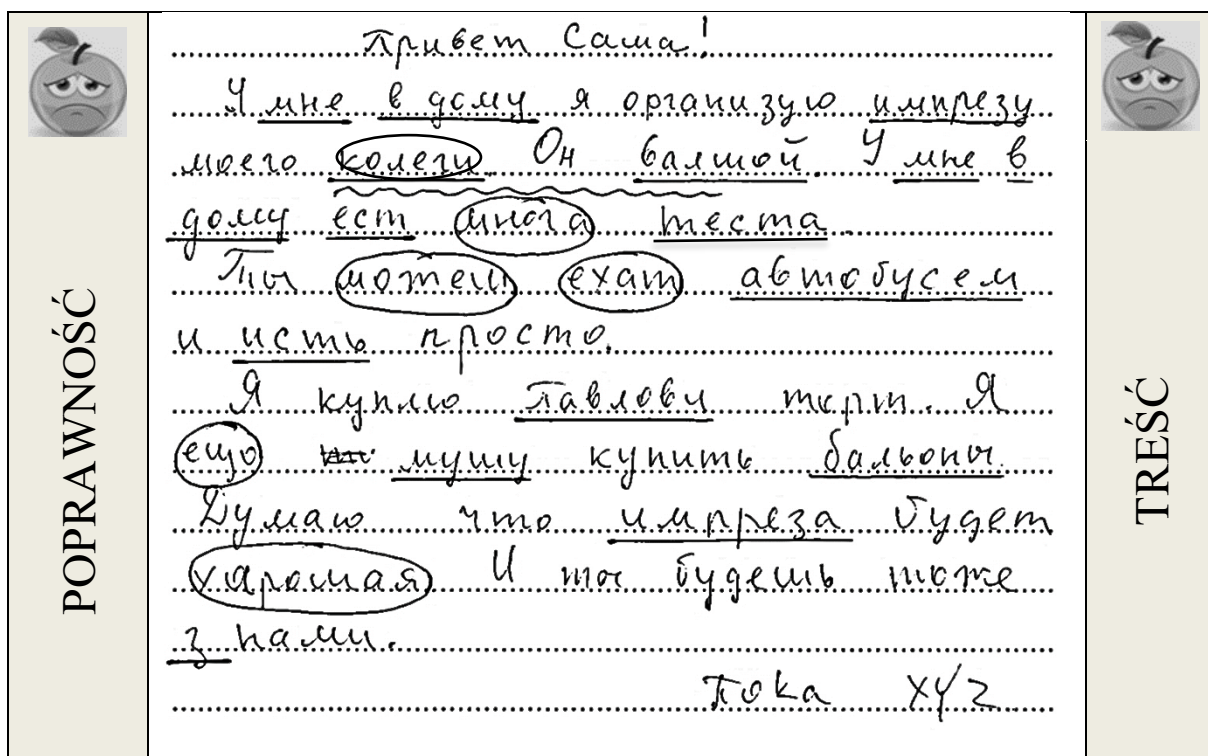 Привет Саша!
У мне в дому я организую импрезу
моего колеги. Он валшой. У мне в
дому ест многа теста.
Ты можеш ехат автобусем
и исть просто.
Я куплю Павлови торт. Я
ещо мушу купить бальоны.
Думаю что импреза будет
харошая И ты будешь тоже
з нами.
Пока XYZ
POPRAWNOŚĆ
TREŚĆ